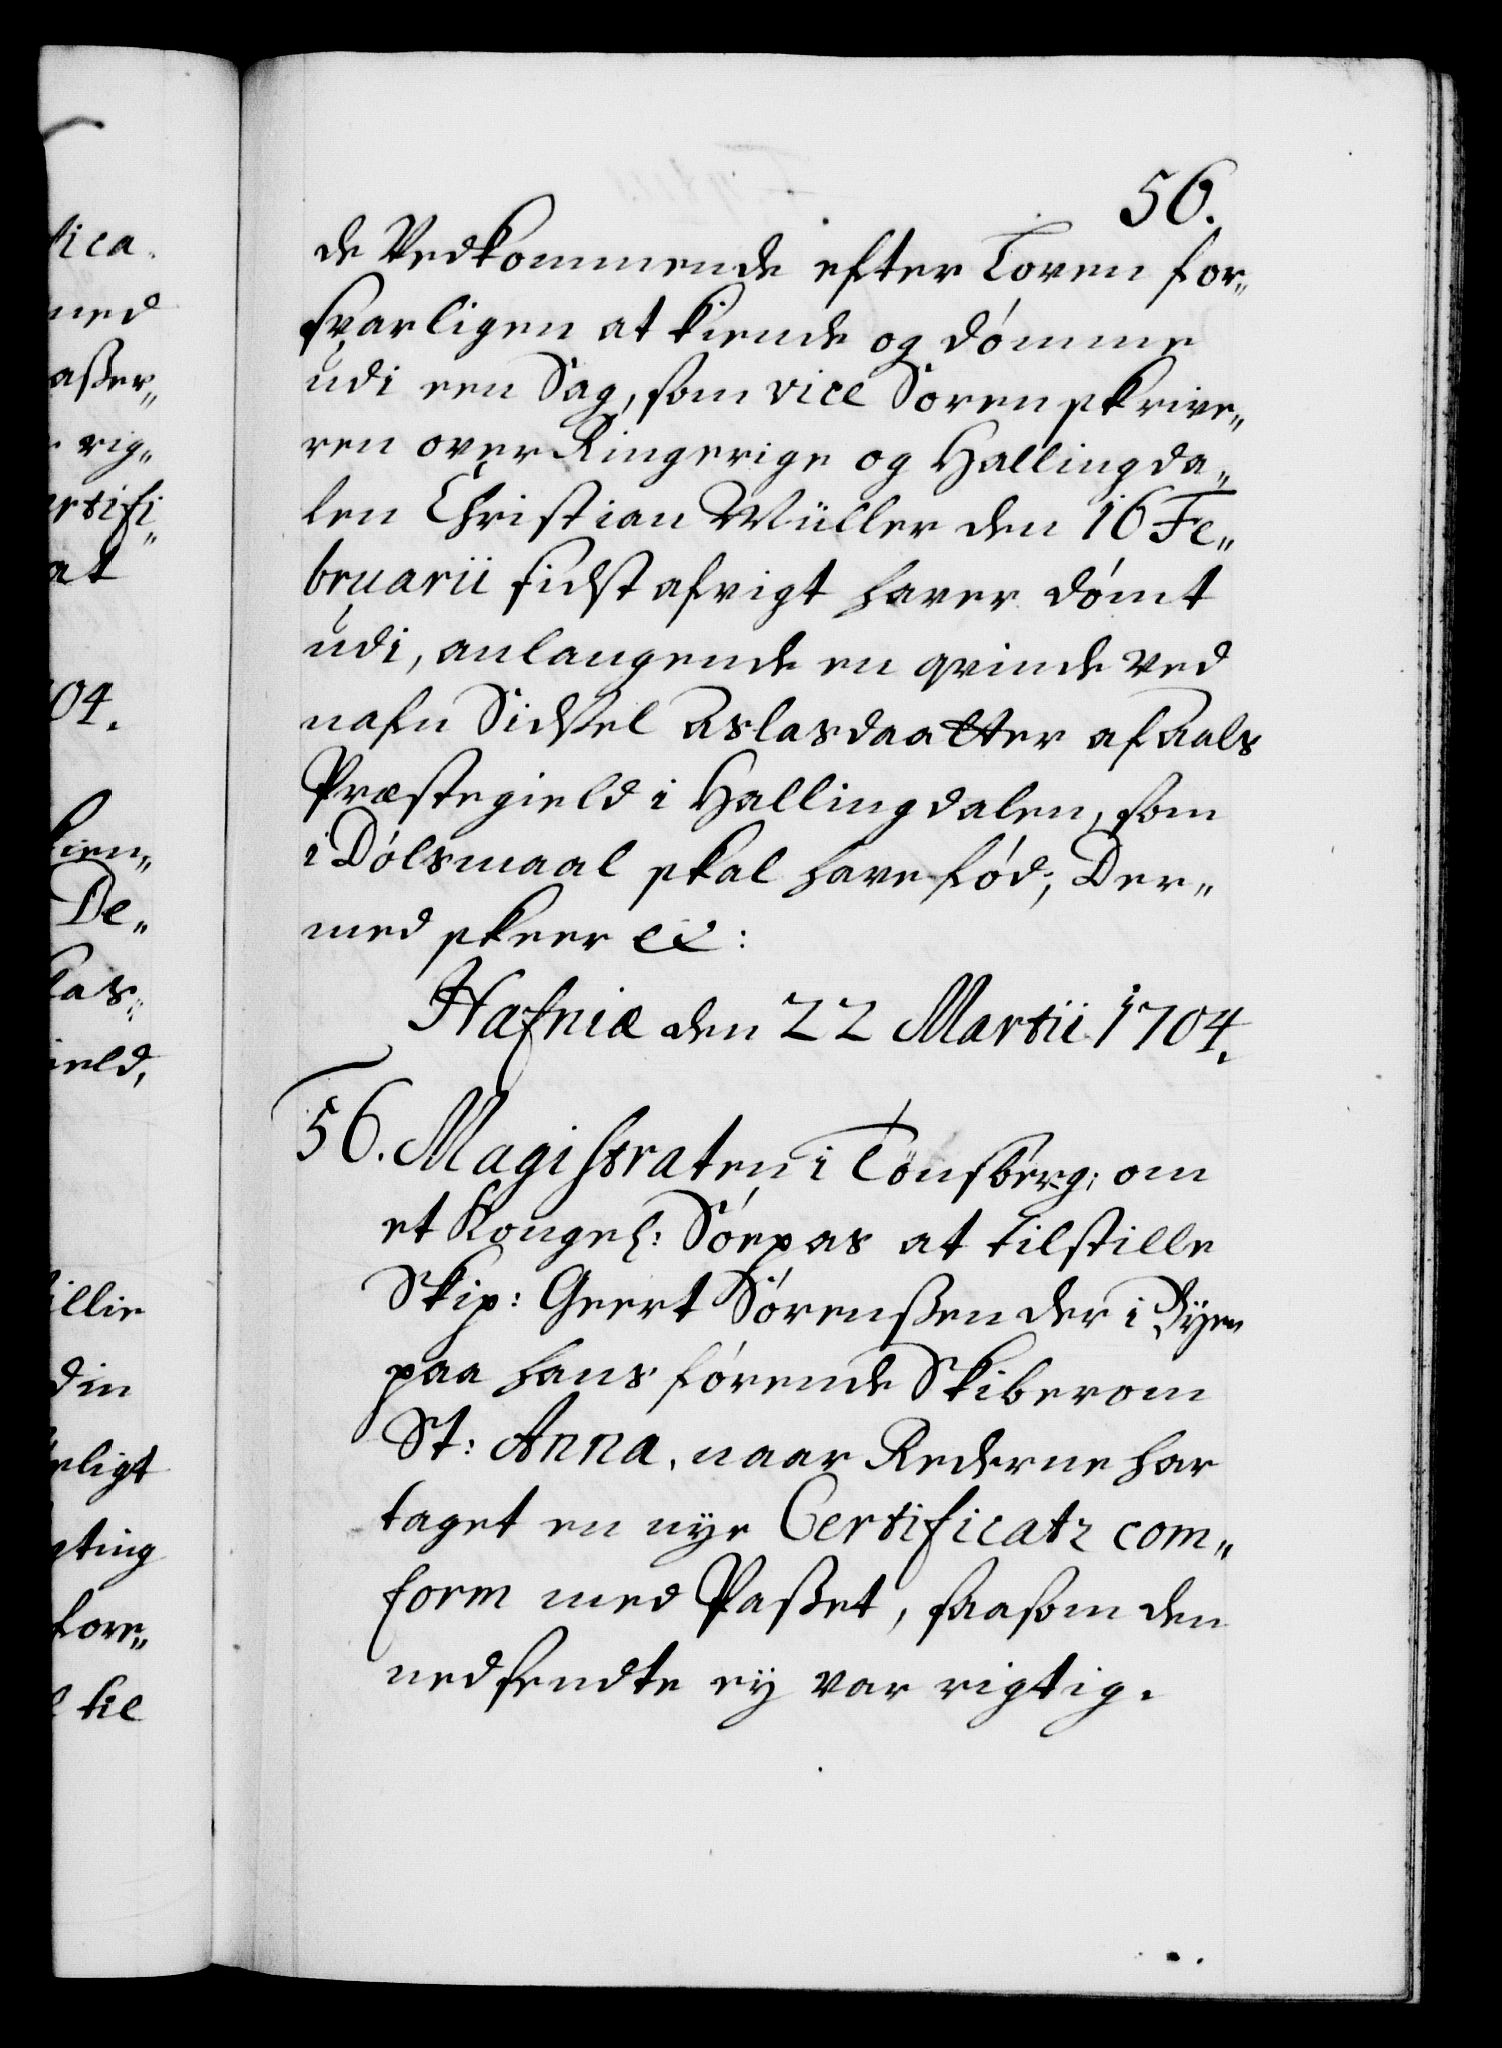 tica.
med
aßer„
rig„
ertifi„
at
04.
kien„
De„
las„
ield,
illie
din
eligt
gting
fore„
til
56.
de Vedkommende efter Loven for„
svarligen at kiende og dömme
udi een Sag, som vice Sorenskrive„
ren over Ringerige og Hallingda„
len Christian Müller den 16 Fe„
bruarii sidst afvigt haver dömt
udi, anlangende en qvinde ved
nafn Sidsel Aslasdaatter af Aals
Præstegield i Hallingdalen, som
i Dölsmaal skal have fód; Der„
med skeer etc:
Hafniæ den 22 Martii 1704.
56. Magistraten i Tönsberg; om
et Kongel: Söepas at tilstille
Skip: Geert Sörenßen der i Byen
paa hans förende Skiberom
St: Anna, naar Rederne har
taget en nye Certificatz com„
form med Paßet, saasom den
nedsendte ey var rigtig.